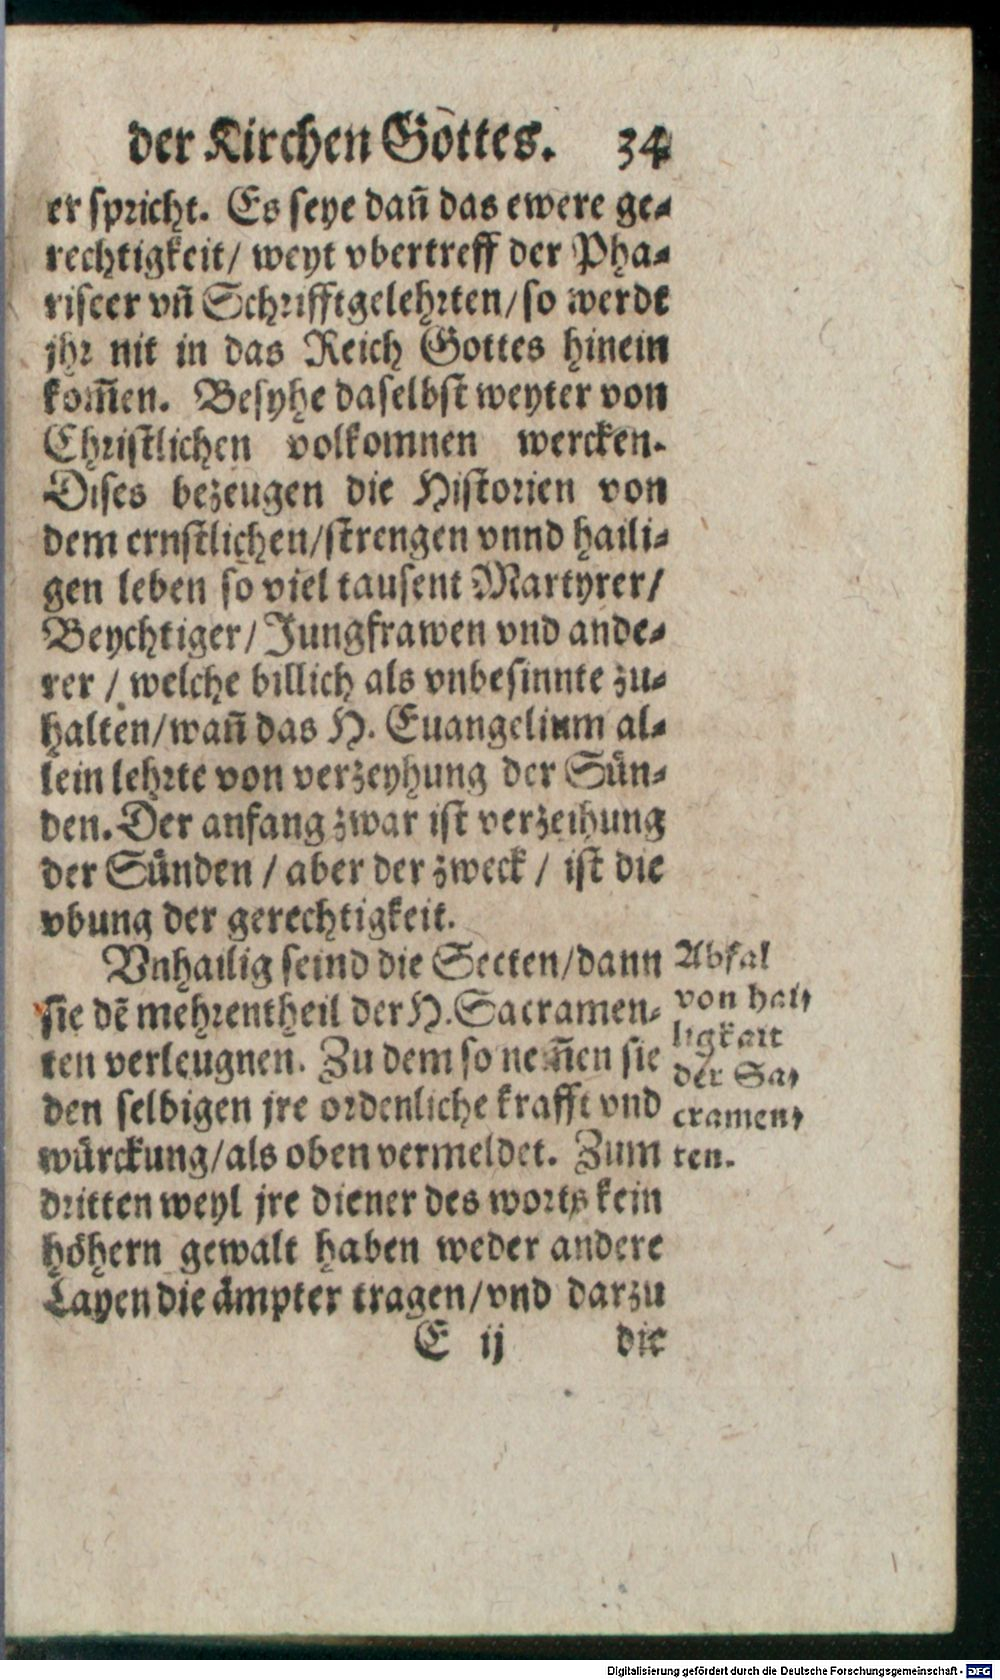 der Kirchen Gottes. 34
er spricht. Es seye dañ das ewere ge-
rechtigkeit/ weyt vbertreff der Pha-
riseer vñ Schrifftgelehrten/ so werdt
jhr nit in das Reich Gottes hinein
kom̃en. Besyhe daselbst weyter von
Christlichen volkomnen wercken.
Dises bezeugen die Historien von
dem ernstlichen/ strengen vnnd haili-
gen leben so viel tausent Martyrer/
Beychtiger/ Jungfrawen vnd ande-
rer / welche billich als vnbesinnte zu-
halten/ wañ das H. Euangelium al-
lein lehrte von verzeyhung der Sün-
den. Der anfang zwar ist verzeihung
der Sünden / aber der zweck / ist die
vbung der gerechtigkeit.
Vnhailig seind die Secten/ dann
sie dẽ mehrentheil der H. Sacramen-
ten verleugnen. Zu dem so nem̃en sie
den selbigen jre ordenliche krafft vnd
würckung/ als oben vermeldet. Zum
dritten weyl jre diener des worts kein
höhern gewalt haben weder andere
Layen die ämpter tragen/ vnd darzu
Abfal
von hai-
ligkait
der Sa-
cramen-
ten.
E ij die
Digitalisierung gefördert durch die Deutsche Forschungsgemeinschaft - DFG